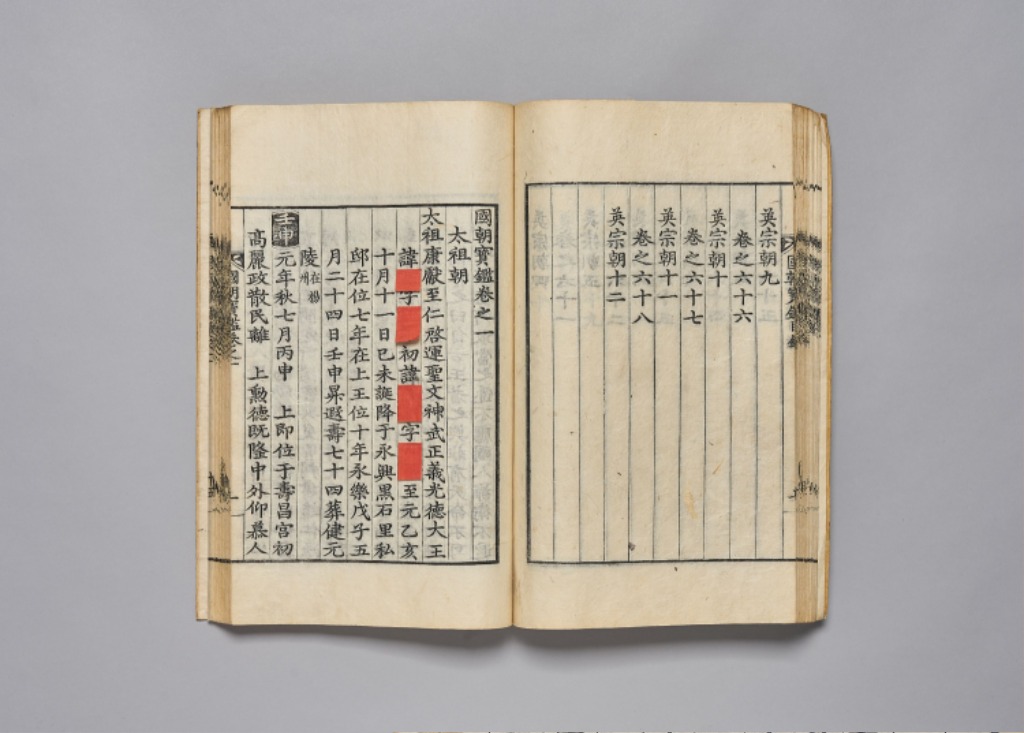 英宗朝九
卷之六十六
英宗朝十
卷之六十七
英宗朝十一
卷之六十八
英宗朝十二
國朝寶鑑卷之一
太祖朝
太祖康獻至仁啓運聖文神武正義光德大王
諱 字 初諱 字 至元乙亥
十月十一日己未誕降于永興黑石里私
邸在位七年在上王位十年永樂戊子五
月二十四日壬申昇遐壽七十四葬健元
陵在楊州
壬申元年秋七月丙申 上卽位于壽昌宮初
高麗政散民離 上勳德旣隆中外仰慕人